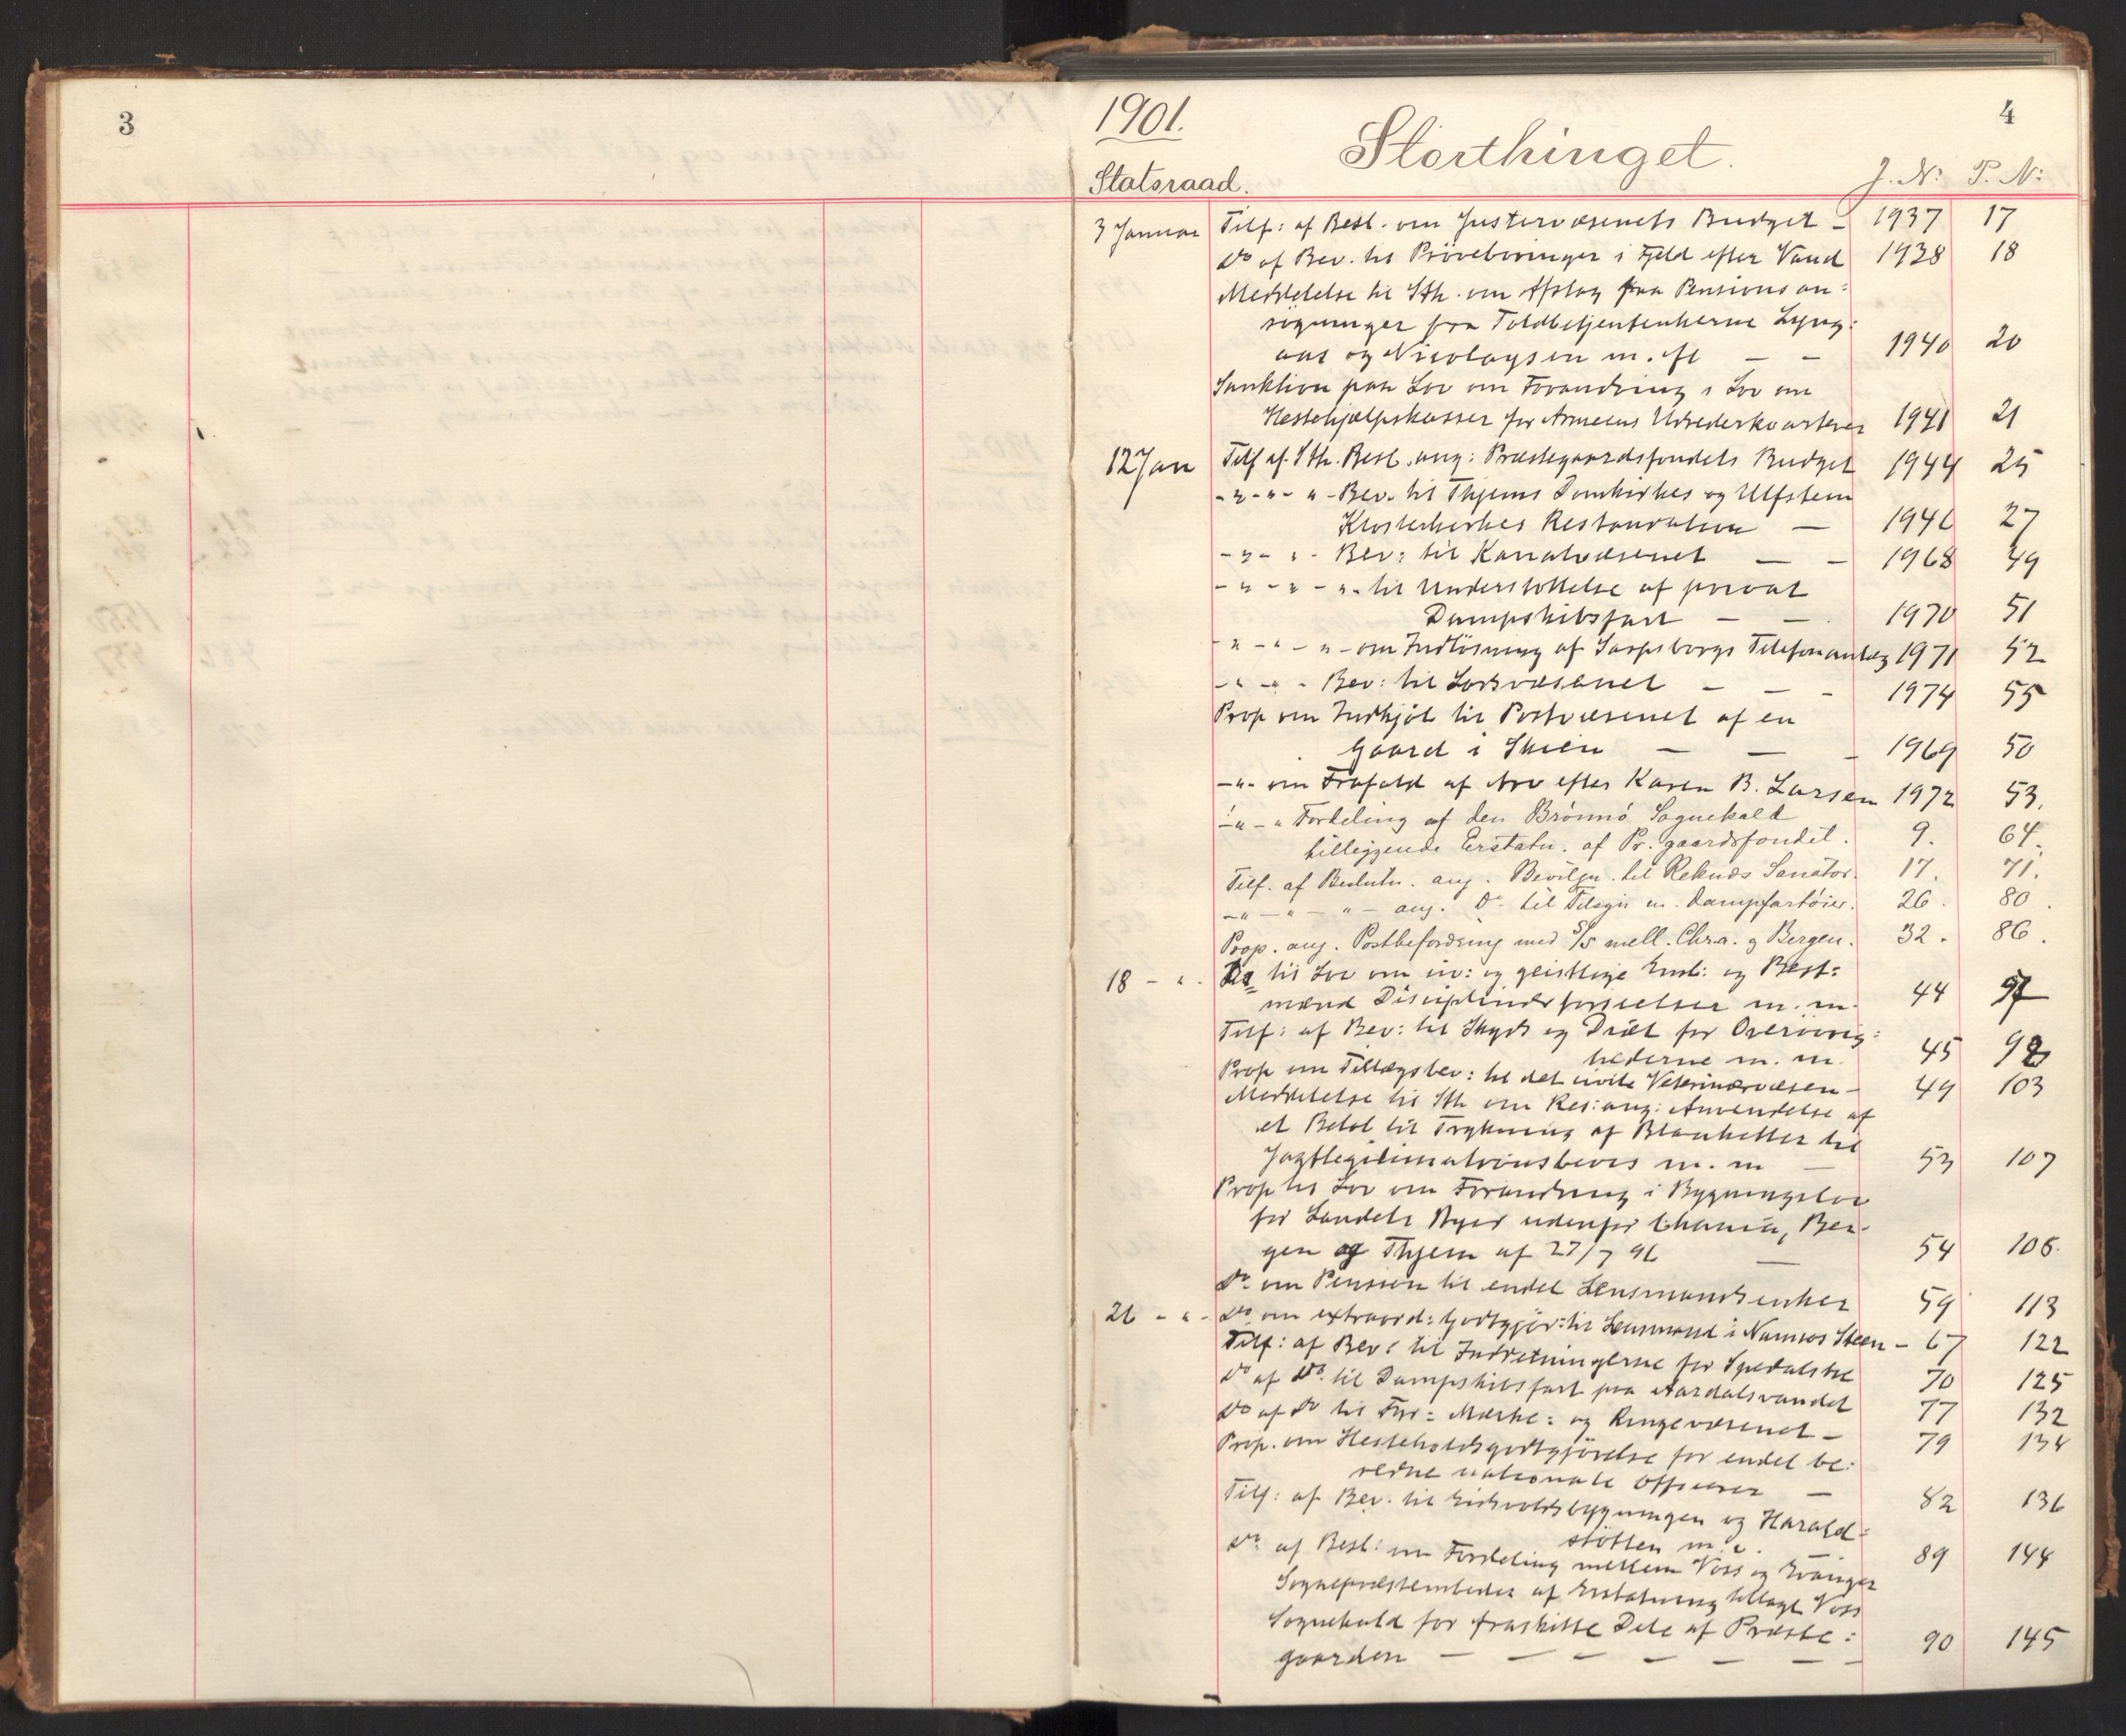 3
1901.
4
Storthinget.
Statsraad.
J. N: P. N:
3 Januar Tilf: af Besl. om Justervæsenets Budget - 1937 17
Do af Bev. til Prøveboringer i Fjeld efter Vand 1938 18
Meddelelse til Sth. om Afslag paa Pensionsan:
søgninger fra Toldbetjentenkerne Lyng:
aas og Nicolaysen m. fl — — 1940 20
Sanktion paa Lov om Forandring i Lov om
Hestehjælpskasser for Armeens Udrederkvarterer 1941 21
12 Jan Tilf af Sth. Besl. ang: Præstegaardsfondets Budget 1944 25
-"-"-"- Bev. til Thjems Domkirkes og Utsteen
Klosterkirkes Restauration — 1946 27
-"-"- Bev: til Kanalvæsenet — — 1968 49
-"-"-"- til Understøttelse af privat
Dampskibsfart — — 1970 51
-"-"-"- om Indløsning af Sarpsborgs Telefonanlæg 1971 52
-"-"- Bev: til Lodsvæsenet — — - 1974 55
Prop om Indkjøb til Postvæsenet af en
Gaard i Skien — — - 1969 50
-"- om Frafald af Arv efter Karen B. Larsen 1972 53.
-"-" Fordeling af den Brønnø Sognekald
tilleggende Erstatn. af Pr. gaardsfondet. 9. 64.
Tilf. af Beslutn. ang. Bevilgn. til Reknæs Sanator. 17. 71.
-"-"-"- ang. Do til Tilsyn m. Dampfartøier. 26. 80.
Prop. ang. Postbefordring med S/S mell. Chra. & Bergen. 32. 86.
18 - " - Do til Lov om civ: og geistlige Emb: og Best:
mænd Disciplinærforseelser m. m. 44 97
Tilf: af Bev: til Skyds og Diæt for Overøvrig:
hederne m. m. 45 98
Prop om Tillægsbev: til det civile Veterinærvæsen - 49 103
Meddelelse til Sth om Res: ang: Anvendelse af
et Beløb til Trykning af Blanketter til
Jagtlegitimationsbevis m. m — 53 107
Prop til Lov om Forandring i Bygningslov
for Landets Byer udenfor Chania, Ber-
gen og Thjem af 27/7 96 — 54 108.
Do om Pension til endel Lensmandsenker 59 113
26 - " - Do om extraord: Godtgjør: til Lensmand i Namsos Steen - 67 122
Tilf: af Bev: til Indretningerne for Spedalske 70 125
Do af Do til Dampskibsfart paa Aardalsvandet 77 132
Do af Do til Fyr: Mærke: og Ringevæsenet - 79 134
Prop. om Hesteholdsgodtgjørelse for endel be:
redne nationale Officerer — 82 136
Tilf: af Bev. til Eidsvoldsbygningen og Harald:
støtten m. v. 89 144
Do af Besl: om Fordeling mellem Voss og Evanger
Sognepræstembeder af Erstatning tillagt Voss
Sognekald for fraskilte Dele af Præste:
gaarden — — — — — — — 90 145